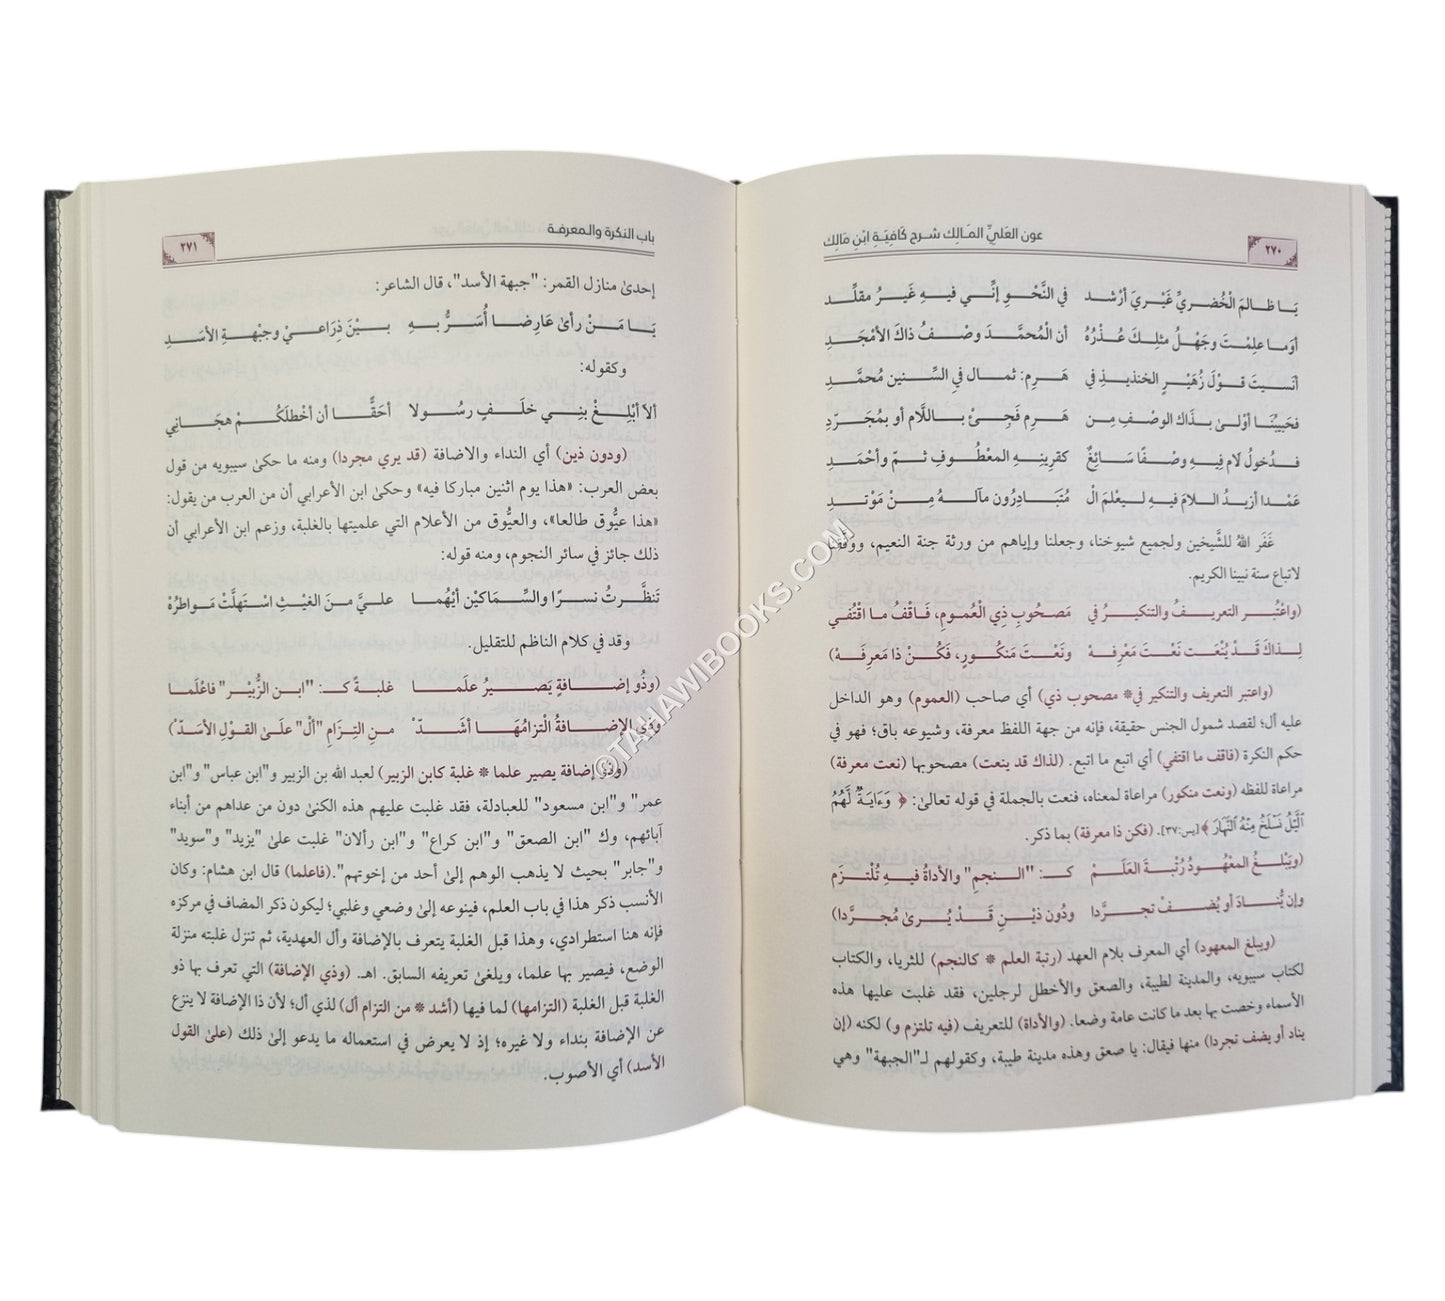 ٢٧٠
عون العَلِيِّ المَالِك شرح كَافِيَةِ ابْنِ مَالِك
يَـا ظَـالمَ الْخُضَريِّ غَيْريَ أرْشد في النَّحْوِ إنِّـي فيـهِ غَيـرُ مقلِّـد
أوَمـا علِمْتَ وجَهْلُ مثلِـكَ عُـذْرُهُ أن الْمُحمَّـدَ وصْـفُ ذاكَ الأمْجَـدِ
أنَسيتَ قـوْلَ زُهَيْـرٍ الخنذيـذِ في هَـرِمٍ: ثمـال في السِّنين مُحمَّـدِ
فحَبيبُنَـا أوْلـىٰ بـذَاك الوصْـفِ مِـن هَـرِمٍ فَجِـئْ بـاللَّامِ أو بمُجَـرَّدِ
فـدُخولُ لَامٍ فيـهِ وصْـفًا سَـائغٌ كقرينـهِ المعْطُـوفِ ثـمّ وأحْمَـدِ
عَمْـدا أزيـدُ الـلامَ فيـهِ ليعْلـمَ الْ مُتَبَـادِرُونَ مآلـهُ مِـنْ مَوْتـدِ
غَفَر اللهُ للشَّيخين ولجميع شيوخنا، وجعلنا وإياهم من ورثة جنة النعيم، ووفقنا
لاتباع سنة نبينا الكريم.
(واعْتُبـر التعريـفُ والتنكيـرُ في مَصحُوبِ ذِي الْعُمومِ، فَـاقْفُ مـا اقْتُفي
لِـذاكَ قَـدْ يُنْعَـت نَعْـتَ مَعْرِفـهْ ونَعْـتَ مَنكُـورٍ، فَكُـنْ ذا مَعرِفَـهْ)
(واعتبر التعريف والتنكير في* مصحوب ذي) أي صاحب (العموم) وهو الداخل
عليه أل؛ لقصد شمول الجنس حقيقة، فإنه من جهة اللفظ معرفة، وشيوعه باق؛ فهو في
حكم النكرة (فاقف ما اقتفي) أي اتبع ما اتبع. (لذاك قد ينعت) مصحوبها (نعت معرفة)
مراعاة للفظه (ونعت منكور) مراعاة لمعناه، فنعت بالجملة في قوله تعالىٰ: ﴿ وَءَايَةٌ لَّهُمُ
ٱلَّيۡلُ نَسۡلَخُ مِنۡهُ ٱلنَّهَارَ ﴾[يس:٣٧]. (فكن ذا معرفة) بما ذكر.
(ويَبْلـغ المعْهُـودُ رُتْبـةَ العَلَـمْ كـ: "الـنجمِ" والأداةُ فيـهِ تُلْتـزَم
وإن يُّنـادَ أو يُضـفْ تجـرَّدا ودُون ذيْـنِ قَـدْ يُـرىٰ مُجـرَّدا)
(ويبلغ المعهود) أي المعرف بلام العهد (رتبة العلم * كالنجم) للثريا، والكتاب
لكتاب سيبويه، والمدينة لطيبة، والصعق والأخطل لرجلين، فقد غلبت عليها هذه
الأسماء وخصت بها بعد ما كانت عامة وضعا. (والأداة) للتعريف (فيه تلتزم و) لكنه (إن
يناد أو يضف تجردا) منها فيقال: يا صعق وهذه مدينة طيبة، وكقولهم لـ"الجبهة" وهي
باب النكرة والمعرفة
٢٧١
إحدىٰ منازل القمر: "جبهة الأسد"، قال الشاعر:
يَـا مَـنْ رأىٰ عَارِضـا أُسَـرُّ بـهِ بـيْنَ ذِرَاعـيْ وجبْهـةِ الأسَـدِ
وكقوله:
ألاَ أبْلِـغْ بنِـي خلَـفٍ رسُـولا أحَقًّـا أن أخْطلَكُـمْ هجَـانِي
(ودون ذين) أي النداء والاضافة (قد يري مجردا) ومنه ما حكىٰ سيبويه من قول
بعض العرب: «هذا يوم اثنين مباركا فيه» وحكىٰ ابن الأعرابي أن من العرب من يقول:
«هذا عيُّوق طالعا»، والعيُّوق من الأعلام التي علميتها بالغلبة، وزعم ابن الأعرابي أن
ذلك جائز في سائر النجوم، ومنه قوله:
تَنظَّـرتُ نسـرًا والسِّمـاكَيْن أيْهُمـا علـيَّ مـنَ الغيْـثِ اسْتهلَّتْ مَـواطرُهْ
وقد في كلام الناظم للتقليل.
(وذُو إضـافةٍ يَصـيرُ علَمـا غلبـةً كـ: "ابـن الزُّبيْـر" فاعْلَمـا
وذي الإضـافةُ الْتزامُهَـا أشَـدّْ مـن التِـزامِ "أَلْ" علَـىٰ القـوْلِ الأسَـدّْ)
(وذو إضافة يصير علما * غلبة كابن الزبير) لعبد الله بن الزبير و"ابن عباس" و"ابن
عمر" و"ابن مسعود" للعبادلة، فقد غلبت عليهم هذه الكنىٰ دون من عداهم من أبناء
آبائهم، وك "ابن الصعق" و"ابن كراع" و"ابن رألان" غلبت علىٰ "يزيد" و"سويد"
و"جابر" بحيث لا يذهب الوهم إلىٰ أحد من إخوتهم".(فاعلما) قال ابن هشام: وكان
الأنسب ذكر هذا في باب العلم، فينوعه إلىٰ وضعي وغلبي؛ ليكون ذكر المضاف في مركزه
فإنه هنا استطرادي، وهذا قبل الغلبة يتعرف بالإضافة وأل العهدية، ثم تنزل غلبته منزلة
الوضع، فيصير بها علما، ويلغىٰ تعريفه السابق. اهـ. (وذي الإضافة) التي تعرف بها ذو
الغلبة قبل الغلبة (التزامها) لما فيها (أشد * من التزام أل) لذي أل؛ لأن ذا الإضافة لا ينزع
عن الإضافة بنداء ولا غيره؛ إذ لا يعرض في استعماله ما يدعو إلىٰ ذلك (علىٰ القول
الأسد) أي الأصوب.
©TAHAWIBOOKS.COM